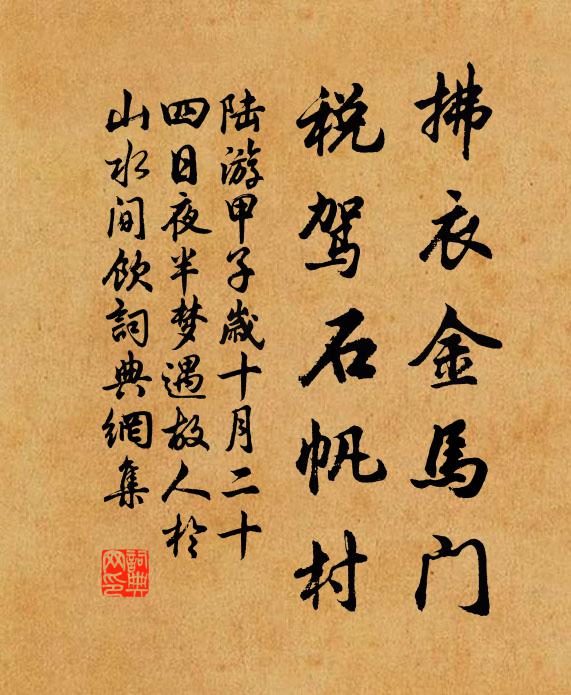 拂衣金馬门
税驾石帆村
陆游甲子歲十月二十
四日夜半梦遇故人於
山水间飲詞典網集
詞典网印